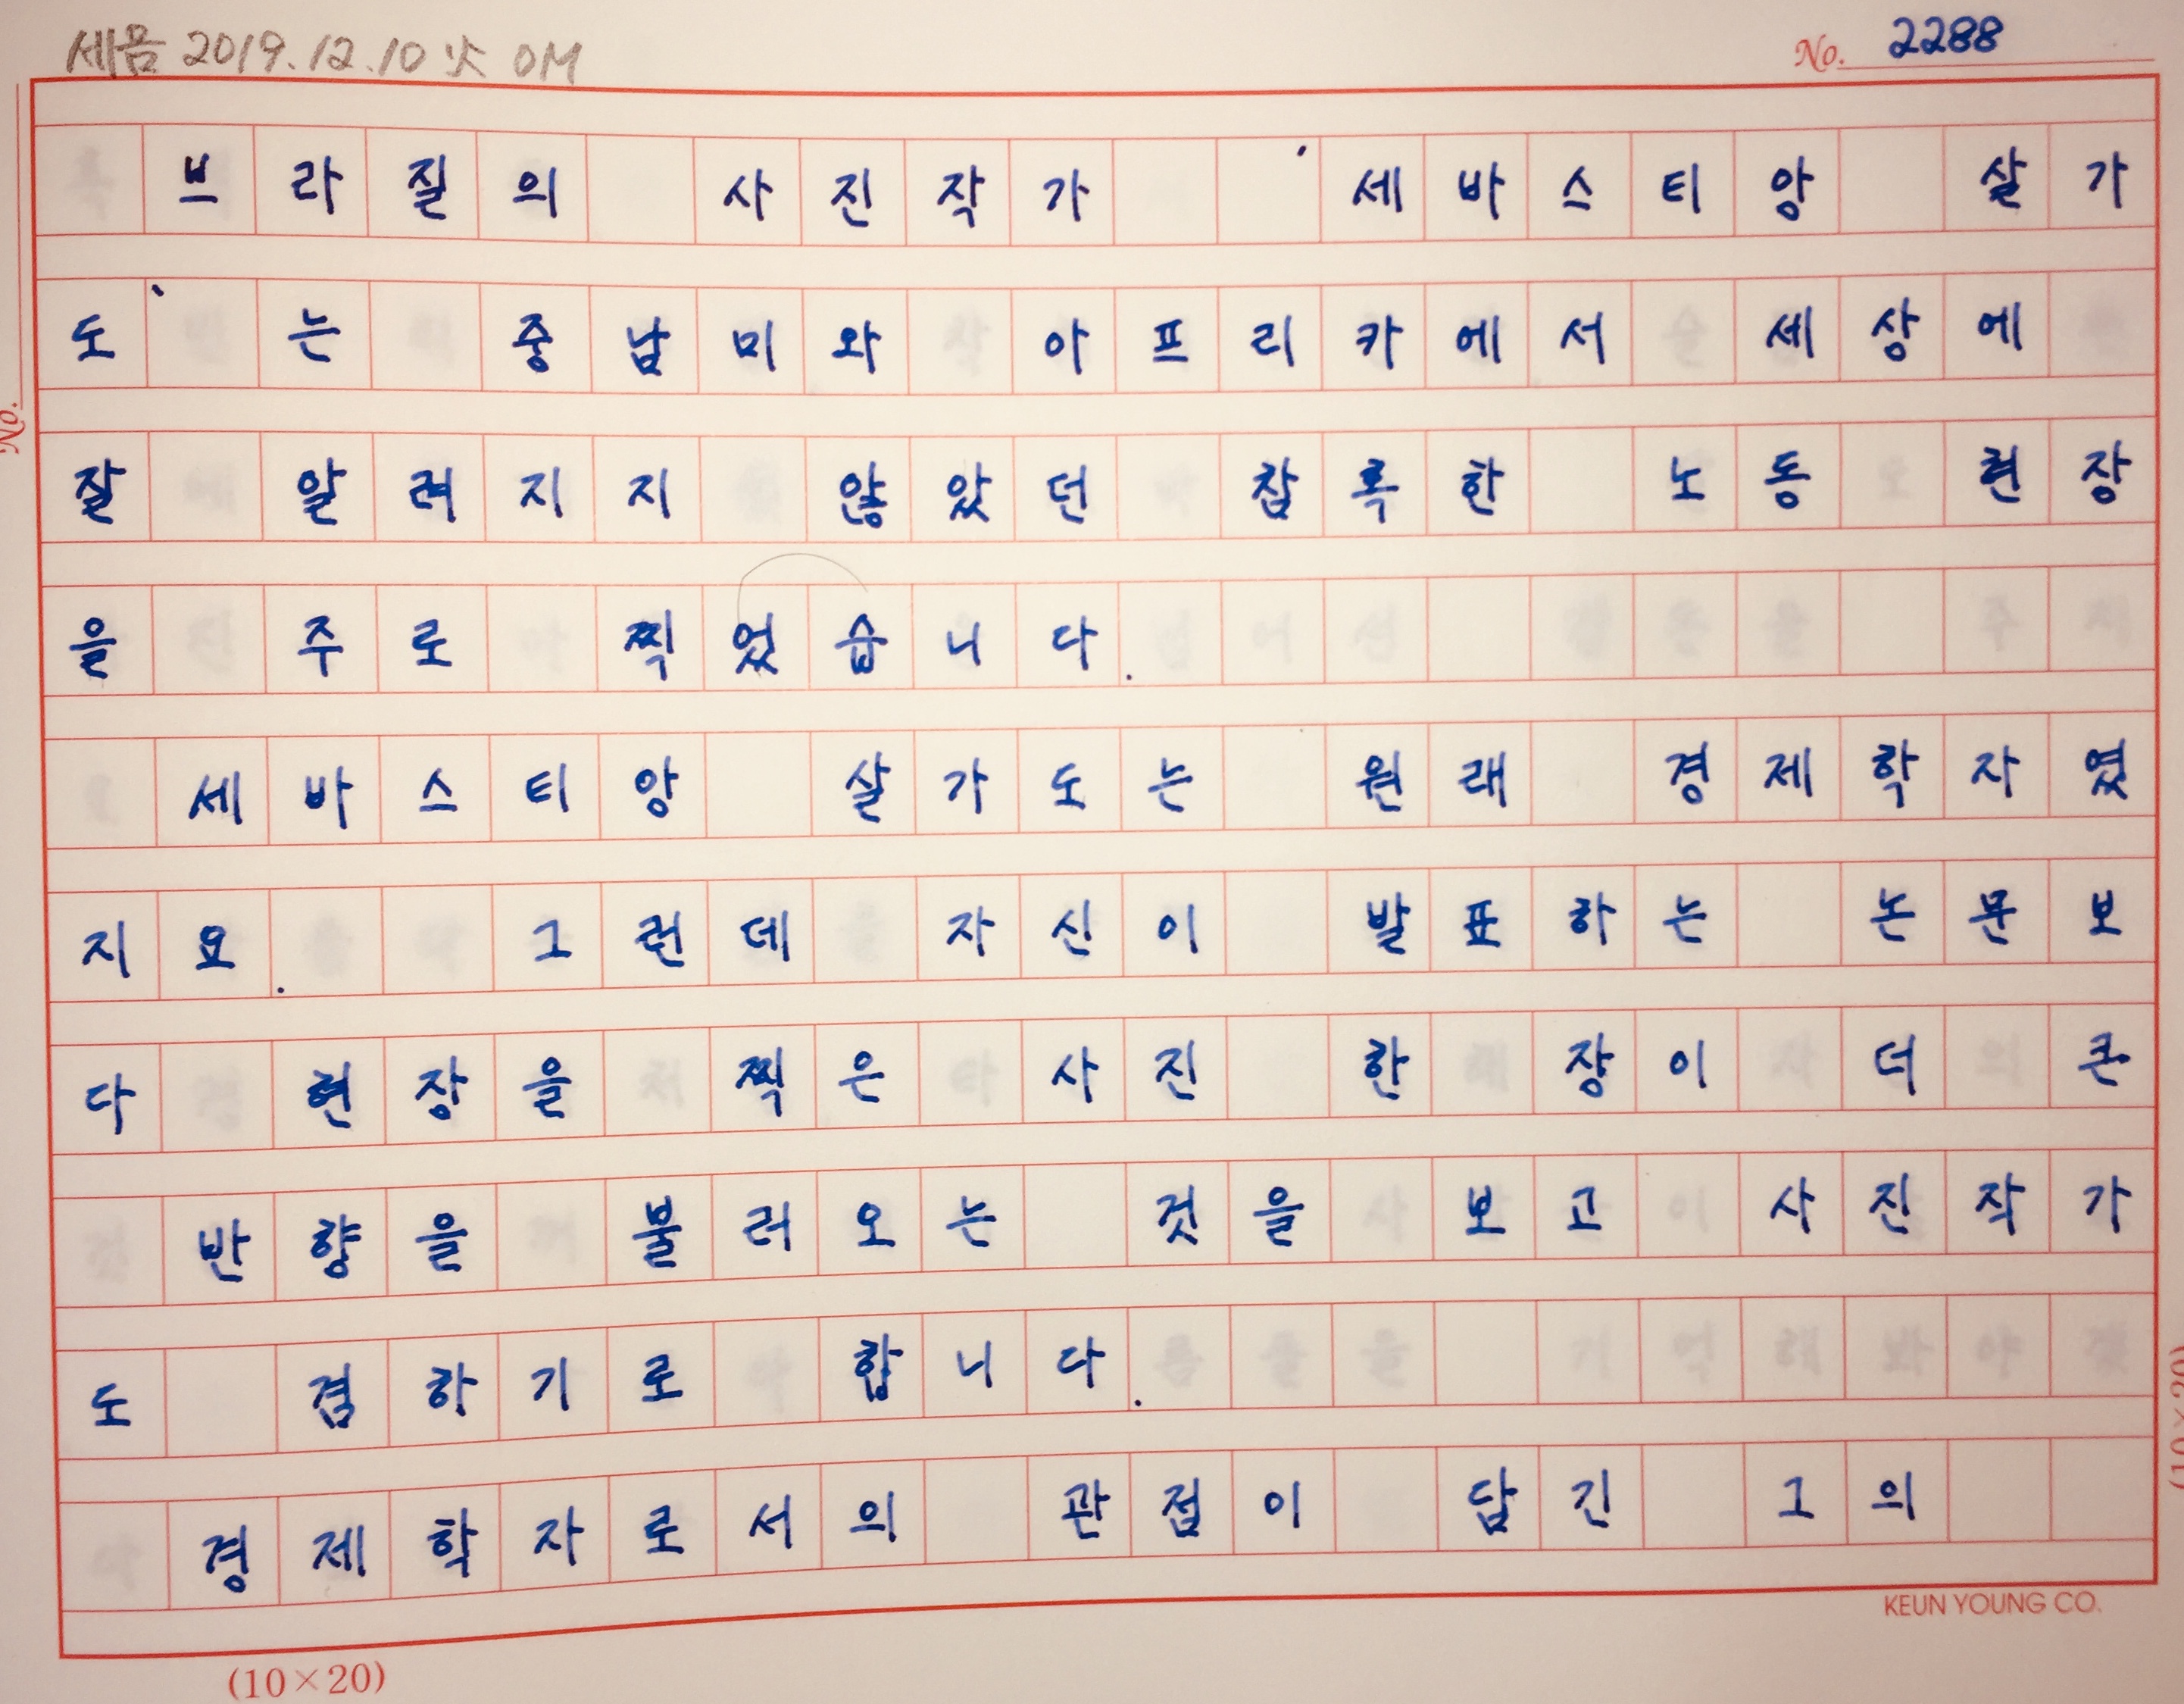 세움 2019.12.10 火 OM
No. 2288
브라질의 사진작가 '세바스티앙 살가
도' 는 중남미와 아프리카에서 세상에
잘 알려지지 않았던 참혹한 노동 현장
을 주로 찍었습니다.
세바스티앙 살가도는 원래 경제학자였
지요. 그런데 자신이 발표하는 논문보
다 현장을 찍은 사진 한 장이 더 큰
반향을 불러오는 것을 보고 사진작가
도 겸하기로 합니다.
경제학자로서의 관점이 담긴 그의
KEUN YOUNG CO.
(10×20)
No.
(10×20)